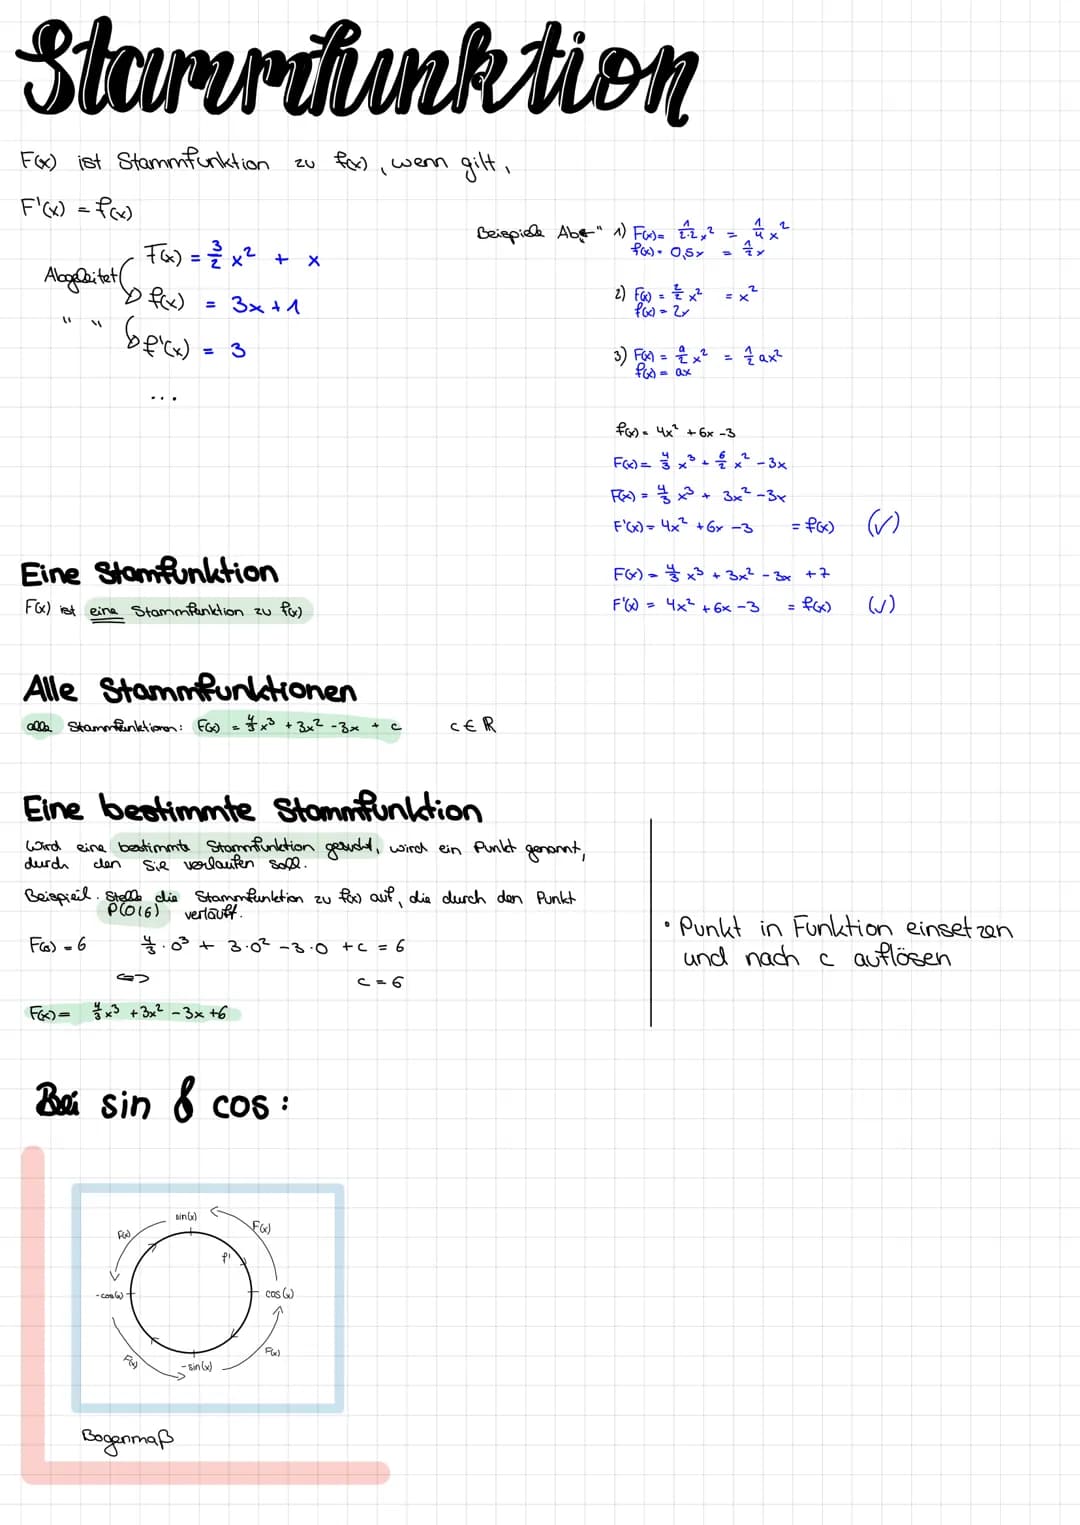 Stammfunktion
F(x) ist Stammfunktion zu f(x), wenn gilt,
F'(x) = f(x)
F(x) = 3/2 x² + x
Abgeleitet
f(x) = 3x + 1
" "
f'(x) = 3
...
Beispiele
1) F(x) = 1/2·2 x² = 1/4 x²
f(x) = 0,5x = 1/2 x
2) F(x) = 2/2 x² = x²
f(x) = 2x
3) F(x) = a/2 x² = 1/2 ax²
f(x) = ax
f(x) = 4x² + 6x - 3
F(x) = 4/3 x³ + 6/2 x² - 3x
F(x) = 4/3 x³ + 3x² - 3x
F'(x) = 4x² + 6x - 3 = f(x) (✓)
F(x) = 4/3 x³ + 3x² - 3x + 7
F'(x) = 4x² + 6x - 3 = f(x) (✓)
Eine Stamfunktion
F(x) ist eine Stammfunktion zu f(x)
Alle Stammfunktionen
alle Stammfunktionen: F(x) = 4/3 x³ + 3x² - 3x + c c ∈ ℝ
Eine bestimmte Stammfunktion
Wird eine bestimmte Stammfunktion gesucht, wird ein Punkt genannt,
durch den sie verlaufen soll.
Beispiel. Stelle die Stammfunktion zu f(x) auf, die durch den Punkt
P(0|6) verläuft.
F(0) = 6 4/3 · 0³ + 3·0² - 3·0 + c = 6
<=> c = 6
F(x) = 4/3 x³ + 3x² - 3x + 6
• Punkt in Funktion einsetzen
und nach c auflösen
Bei sin & cos:
sin(x)
F(x)
F(x)
f'
-cos(x)
cos(x)
F(x)
F(x)
-sin(x)
Bogenmaß